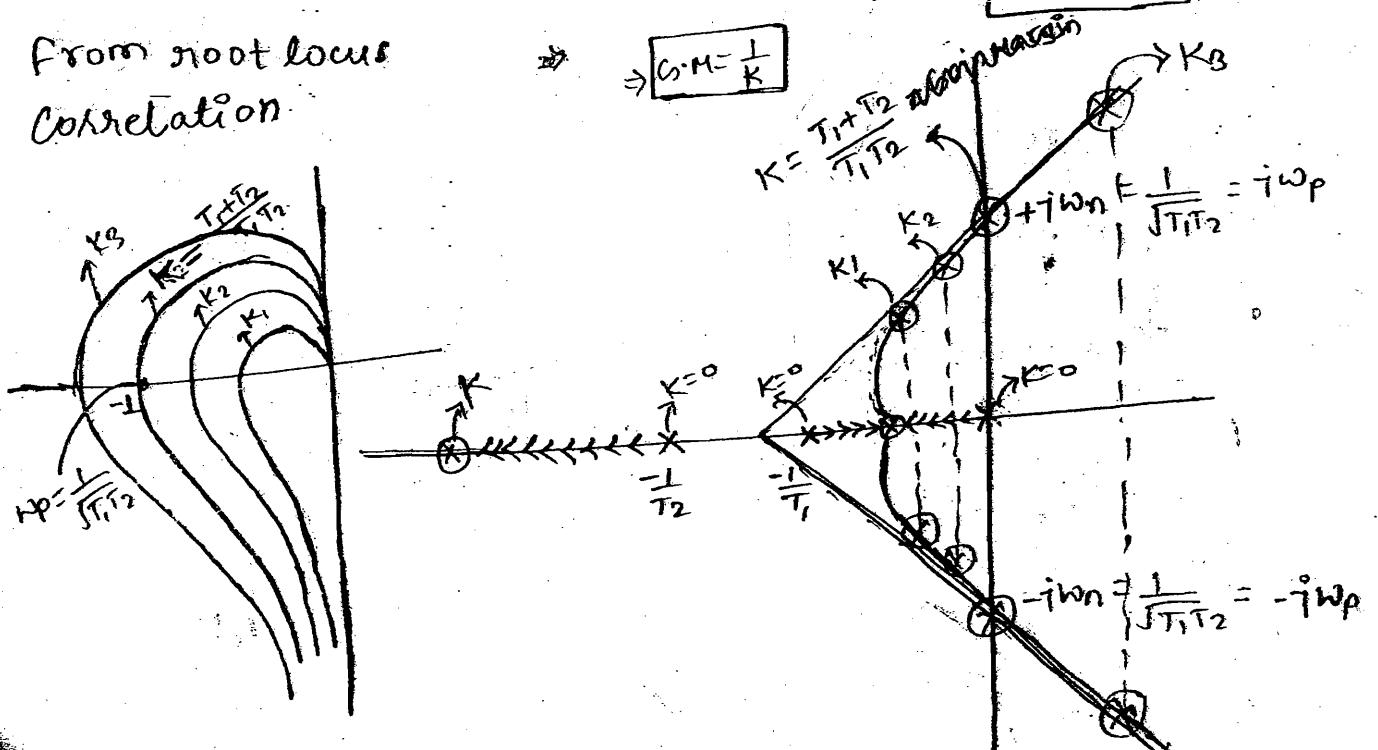 From root locus
Correlation
⇒
⇒ G.M = 1/K
K = T1+T2/T1T2
Gain Margin
K3
+jωn = 1/√T1T2 = jωp
K2
K1
K=0
K=0
K=0
K
-1/T2
-1/T1
-jωn = 1/√T1T2 = -jωp
K3
K = T1+T2/T1T2
K2
K1
-1
ωp = 1/√T1T2